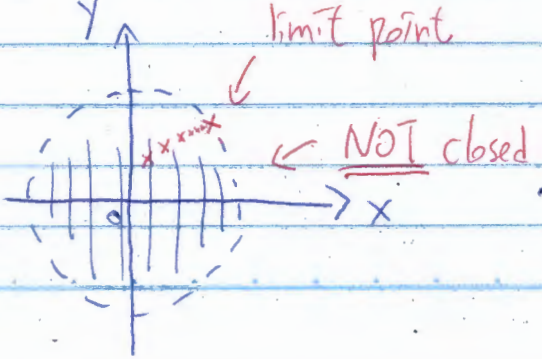 y
limit point
NOT closed
x
o